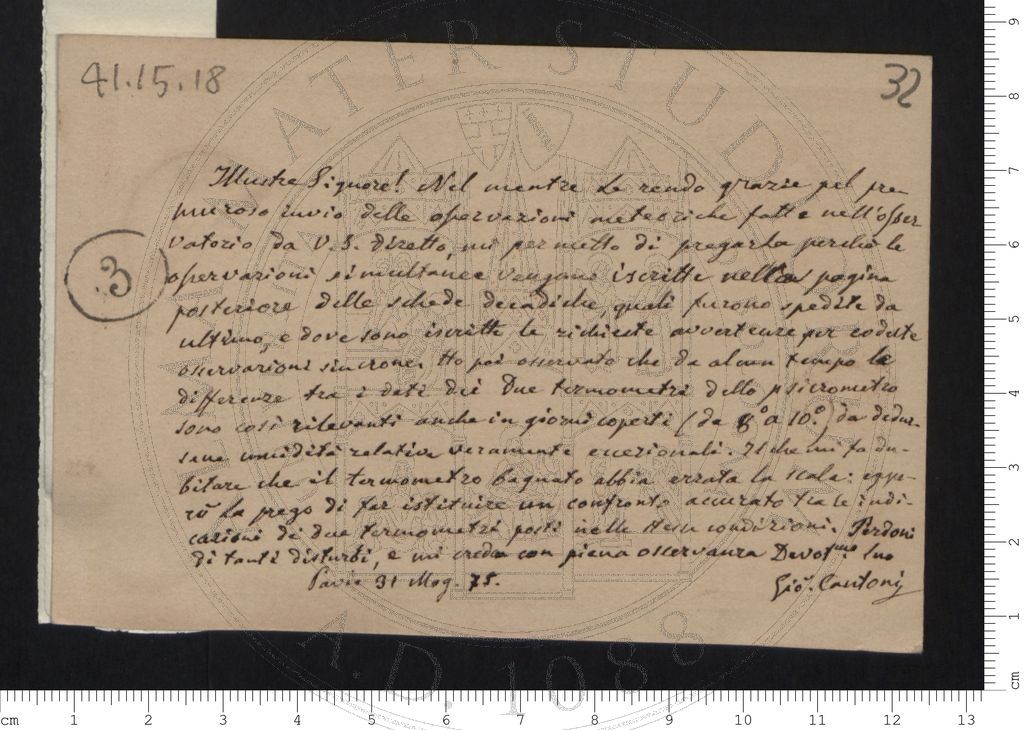 41.15.18
32
3
Illustre Signore! Nel mentre Le rendo grazie pel pre-
muroso invio delle osservazioni meteoriche fatte nell'osser-
vatorio da V. S. diretto, mi permetto di pregarla perchè le
osservazioni simultanee vengano iscritte nella pagina
posteriore delle schede decadiche, quali furono spedite da
ultimo, e dove sono iscritte le richieste avvertenze per codeste
osservazioni sincrone. Ho poi osservato che da alcun tempo le
differenze tra i dati dei due termometri dello psicrometro
sono così rilevanti anche in giorni coperti (da 8° a 10°) da dedur-
sene umidità relative veramente eccezionali. Il che mi fa du-
bitare che il termometro bagnato abbia errata la scala: epper-
ciò La prego di far istituire un confronto accurato tra le indi-
cazioni di due termometri posti nelle stesse condizioni. Perdoni
di tanti disturbi, e mi creda con piena osservanza Devot.mo Suo
Pavia 31 Mag. 75.
Gio. Cantoni
ALMA MATER STUD
A.D. 1088
cm 1 2 3 4 5 6 7 8 9 10 11 12 13
cm 1 2 3 4 5 6 7 8 9